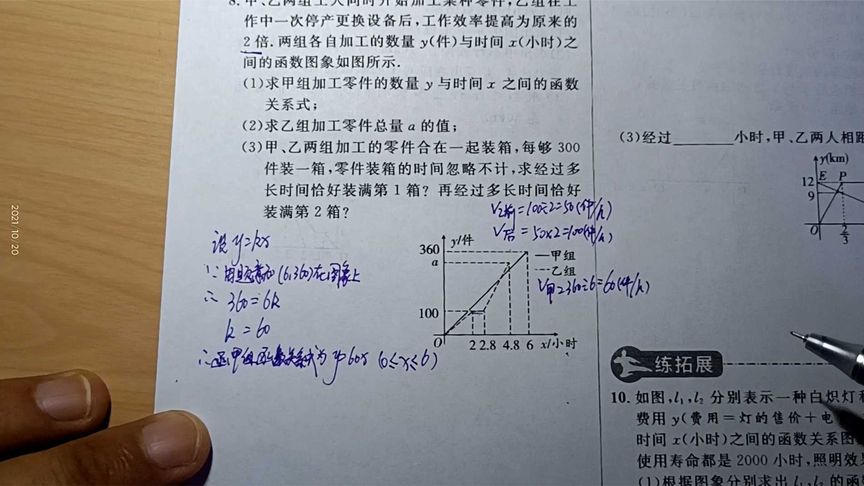 8. 甲、乙两组工人同时开始加工某种零件，乙组在工
作中一次停产更换设备后，工作效率提高为原来的
2倍. 两组各自加工的数量 y(件)与时间 x(小时)之
间的函数图象如图所示.
(1)求甲组加工零件的数量 y 与时间 x 之间的函数
关系式；
(2)求乙组加工零件总量 a 的值；
(3)甲、乙两组加工的零件合在一起装箱，每够 300
件装一箱，零件装箱的时间忽略不计，求经过多
长时间恰好装满第 1 箱？再经过多长时间恰好
装满第 2 箱？
V乙前=100÷2=50(件/h)
V后=50×2=100(件/h)
V甲=360÷6=60(件/h)
设 y=kx
(6,360)在图象上
∴ 360=6k
k=60
y=60x (0≤x≤6)
y/件
360
a
100
O
2 2.8 4.8 6 x/小时
甲组
乙组
(3)经过 小时，甲、乙两人相距
y(km)
12
9
E P
O
2/3
练拓展
10. 如图，l₁,l₂ 分别表示一种白炽灯和
费用 y(费用=灯的售价+电
时间 x(小时)之间的函数关系图
使用寿命都是 2000 小时，照明效果
(1)根据图象分别求出 l₁,l₂ 的函
2021 10 20